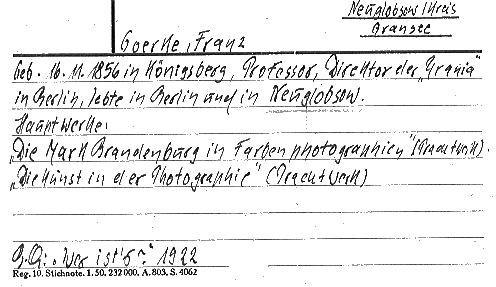 Neuglobsow, Kreis
Gransee
Goerke, Franz
Geb. 16.11.1856 in Königsberg, Professor, Direktor der „Urania"
in Berlin, lebte in Berlin und in Neuglobsow.
Hauptwerke:
„Die Mark Brandenburg in Farbenphotographien" (Prachtwerk).
„Die Kunst in der Photographie" (Prachtwerk)
„Wer ist's?" 1922
Reg. 10. Stichnote. 1. 50. 232 000. A. 803. S. 4062